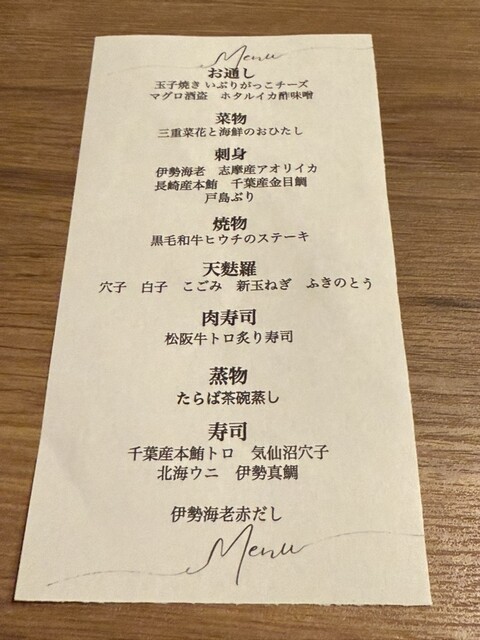 Menu
お通し
玉子焼き いぶりがっこチーズ
マグロ酒盗 ホタルイカ酢味噌
菜物
三重菜花と海鮮のおひたし
刺身
伊勢海老 志摩産アオリイカ
長崎産本鮪 千葉産金目鯛
戸島ぶり
焼物
黒毛和牛ヒウチのステーキ
天麩羅
穴子 白子 こごみ 新玉ねぎ ふきのとう
肉寿司
松阪牛トロ炙り寿司
蒸物
たらば茶碗蒸し
寿司
千葉産本鮪トロ 気仙沼穴子
北海ウニ 伊勢真鯛
伊勢海老赤だし
Menu